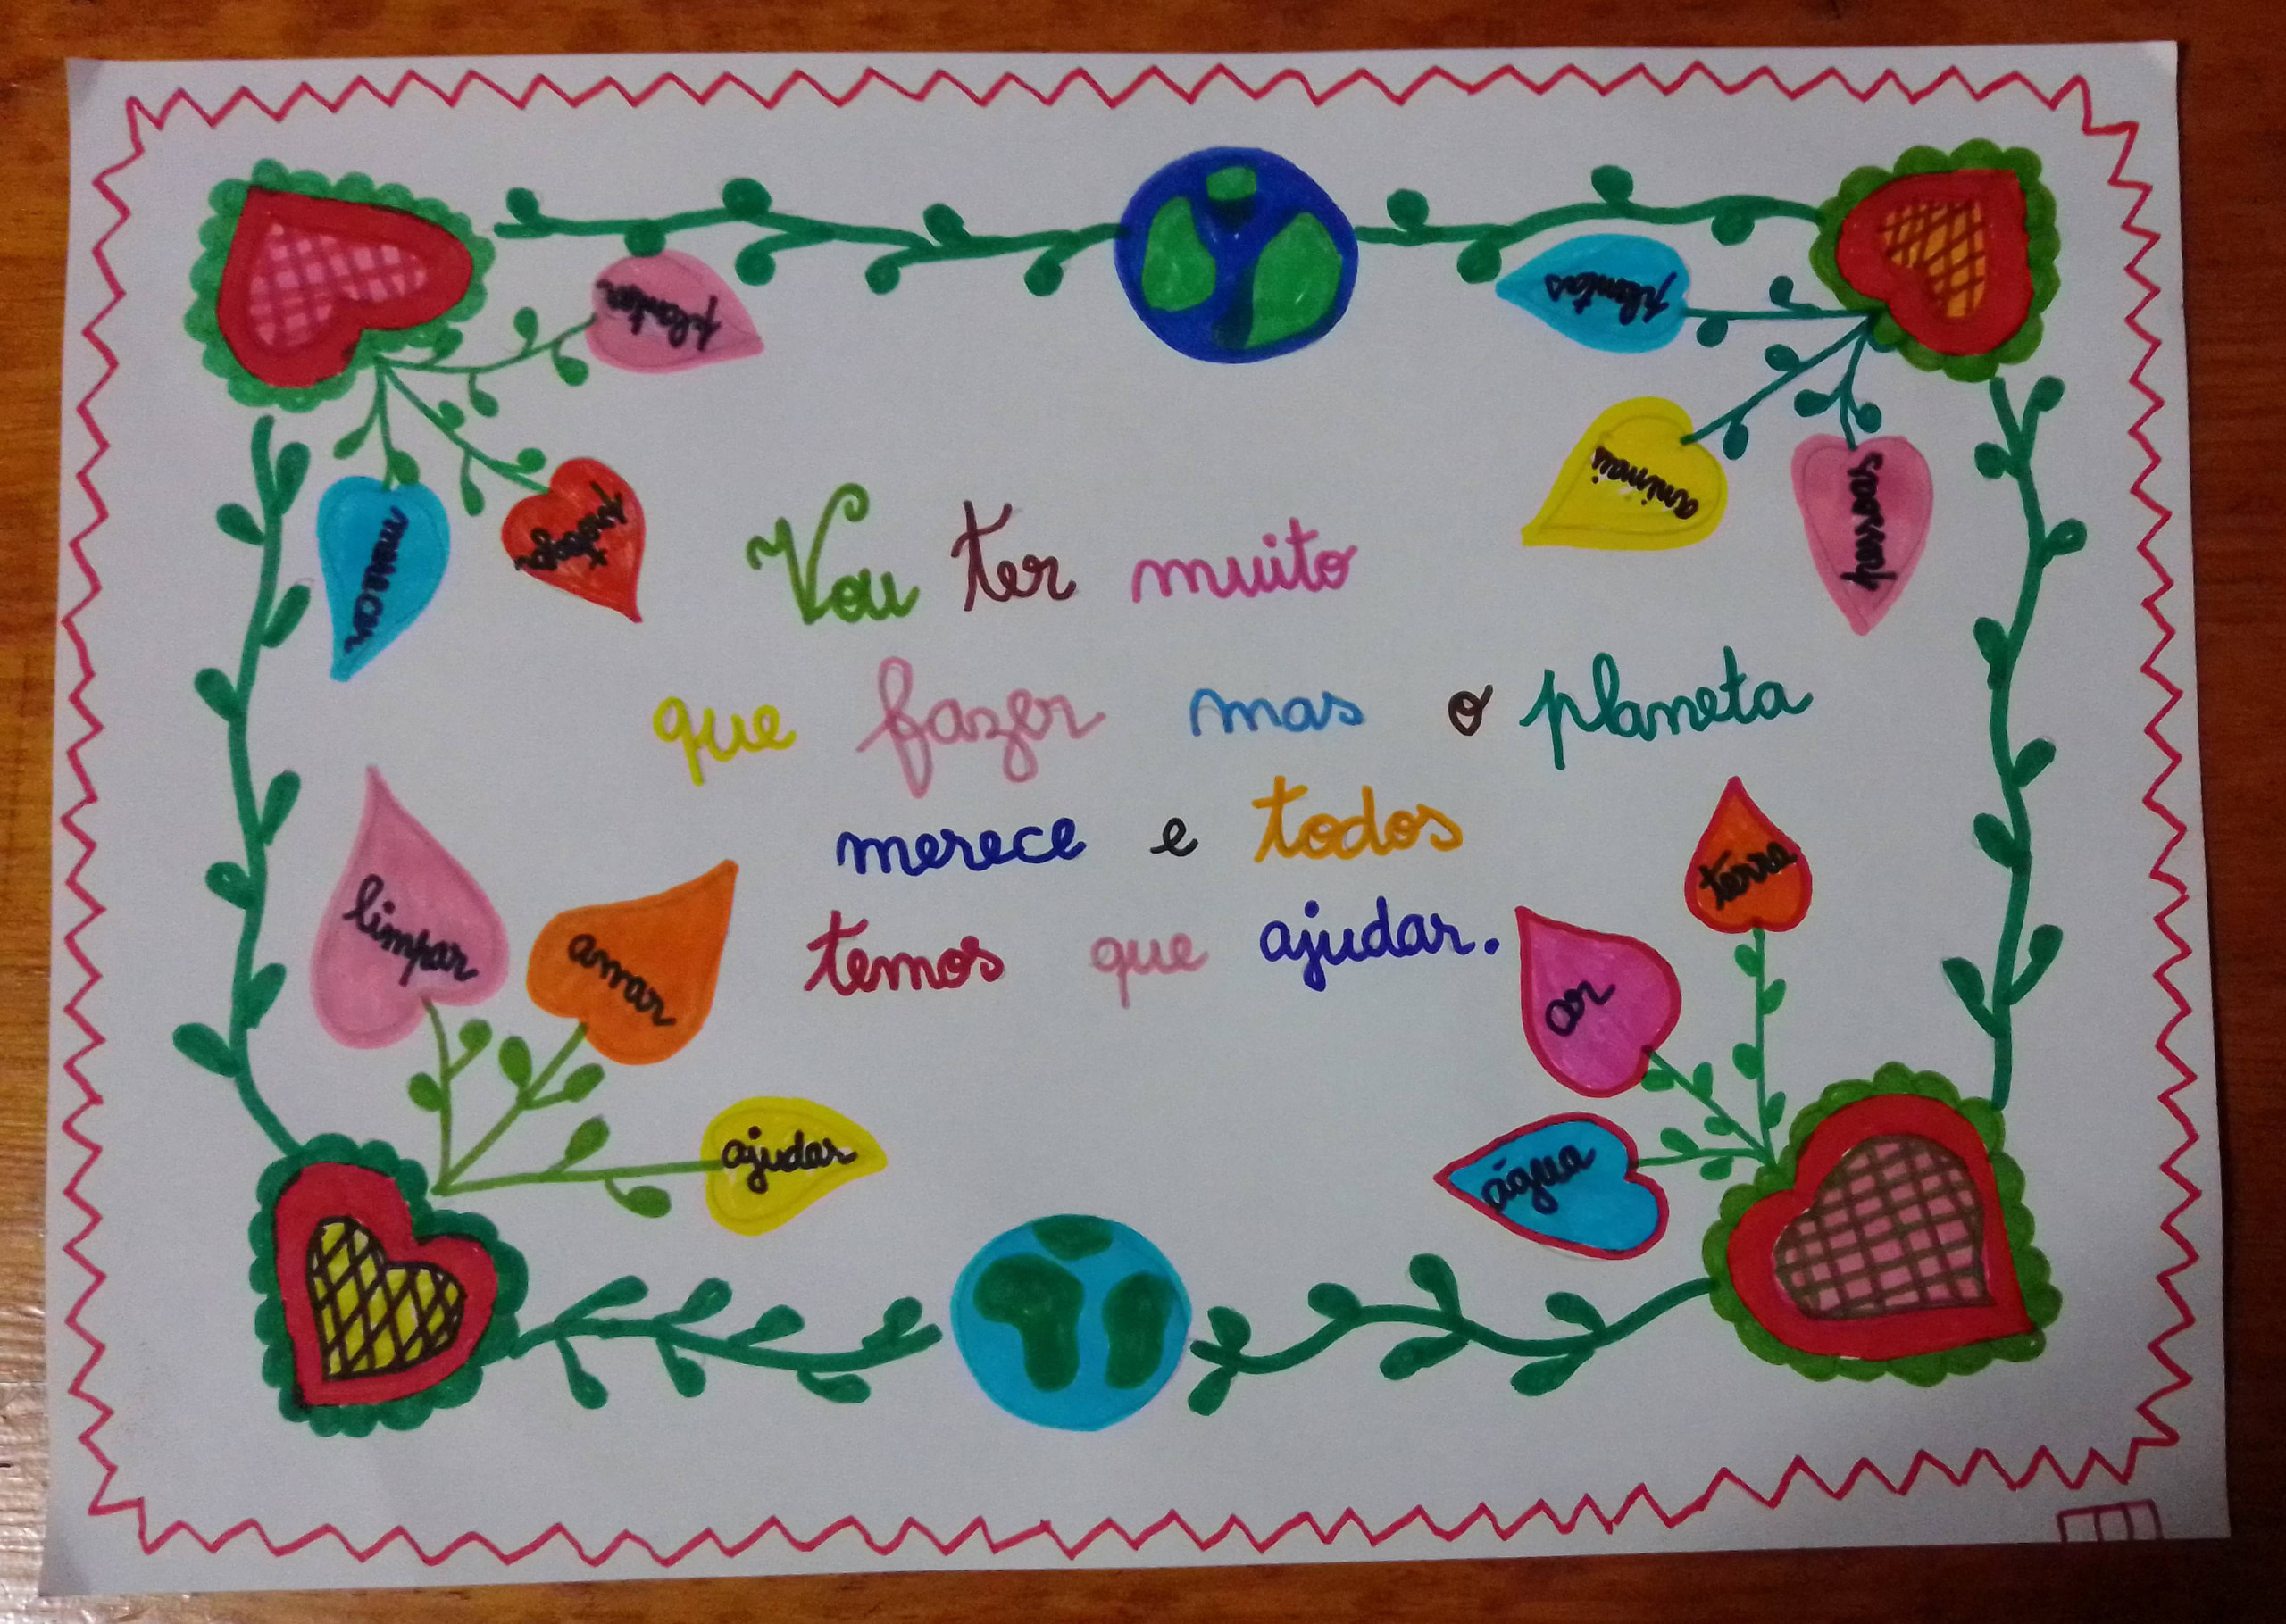 plantar
proteger
plantas
animais
pessoas
Vou ter muito
que fazer mas o planeta
merece e todos
temos que ajudar.
limpar
amar
ajudar
terra
ar
água